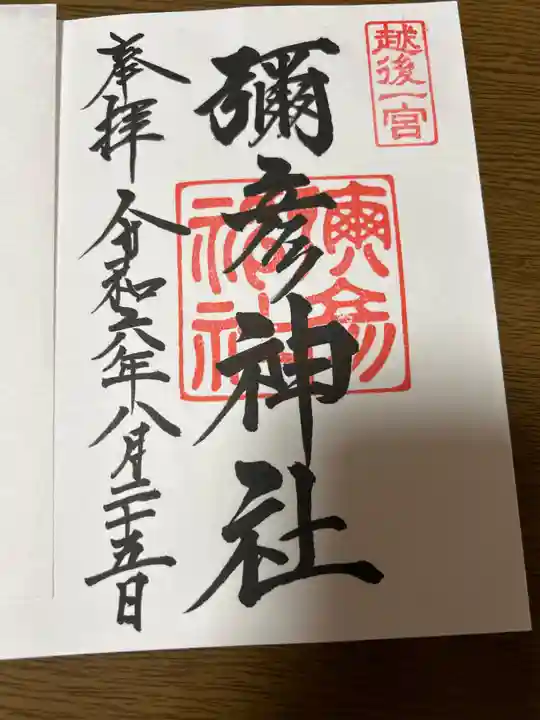 越後一宮
彌彦神社
奉拝 令和六年八月二十五日